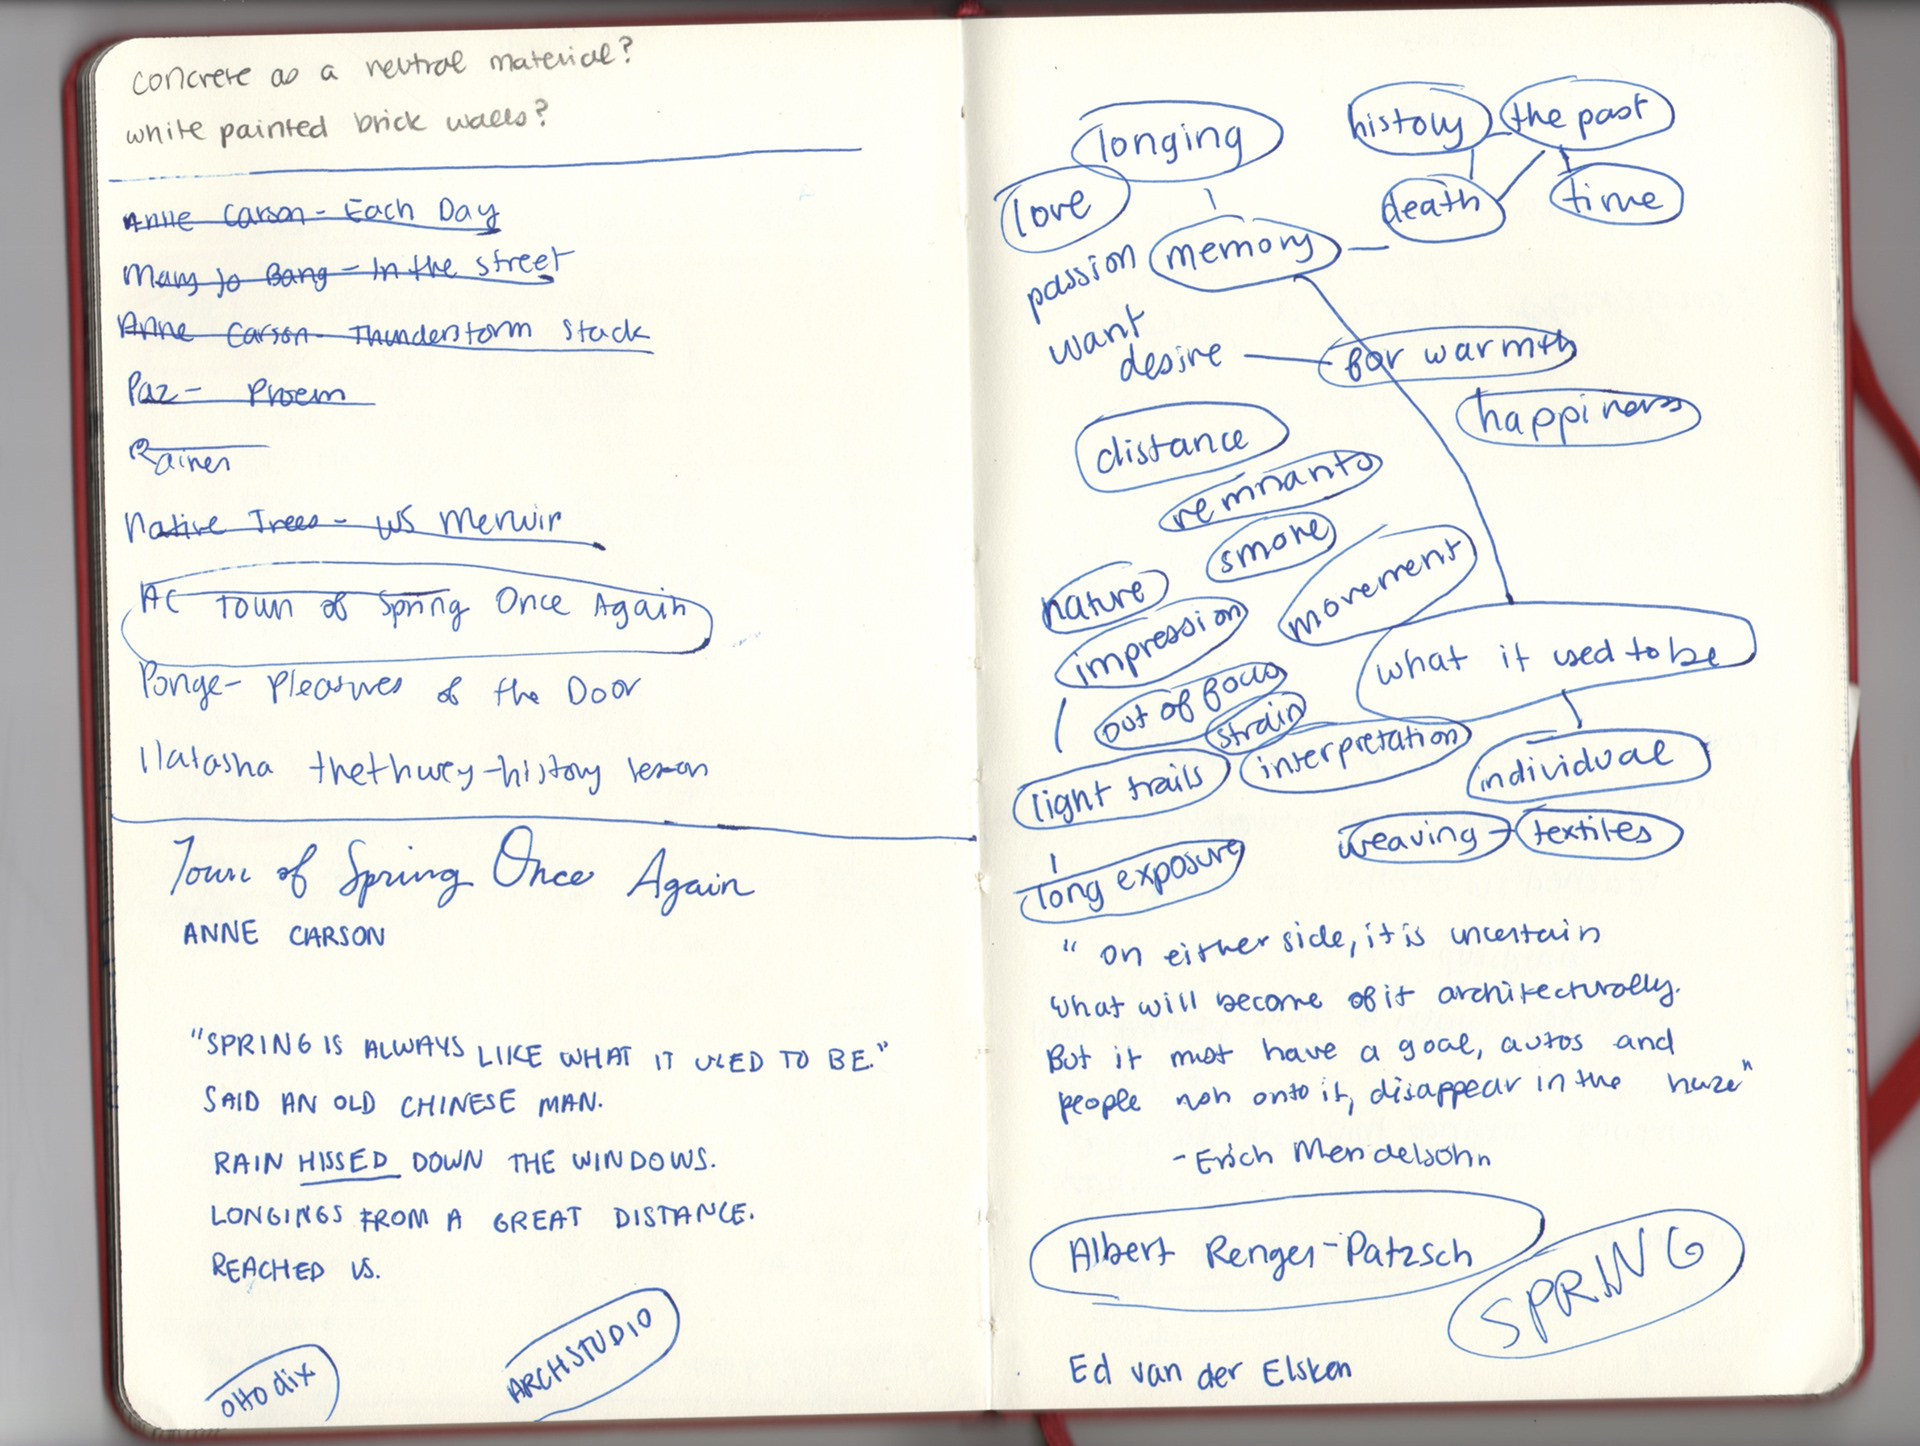 concrete as a neutral material?
white painted brick walls?
Anne Carson - Each Day
Mary Jo Bang - In the street
Anne Carson - Thunderstorm Stack
Paz - Proem
Rainer
Native Trees - WS Merwin
AC Town of Spring Once Again
Ponge - Pleasures of the Door
Natasha thethwey - history lesson
Town of Spring Once Again
ANNE CARSON
"SPRING IS ALWAYS LIKE WHAT IT USED TO BE."
SAID AN OLD CHINESE MAN.
RAIN HISSED DOWN THE WINDOWS.
LONGINGS FROM A GREAT DISTANCE.
REACHED US.
Otto dix
ARCHSTUDIO
longing
history
the past
love
death
time
memory
passion
want
desire
for warmth
happiness
distance
remnants
smoke
movement
nature
impression
what it used to be
out of focus
strain
interpretation
individual
light trails
weaving
textiles
long exposure
" on either side, it is uncertain
what will become of it architecturally.
But it must have a goal, autos and
people rush onto it, disappear in the haze"
- Erich Mendelsohn
Albert Renger-Patzsch
SPRING
Ed van der Elsken